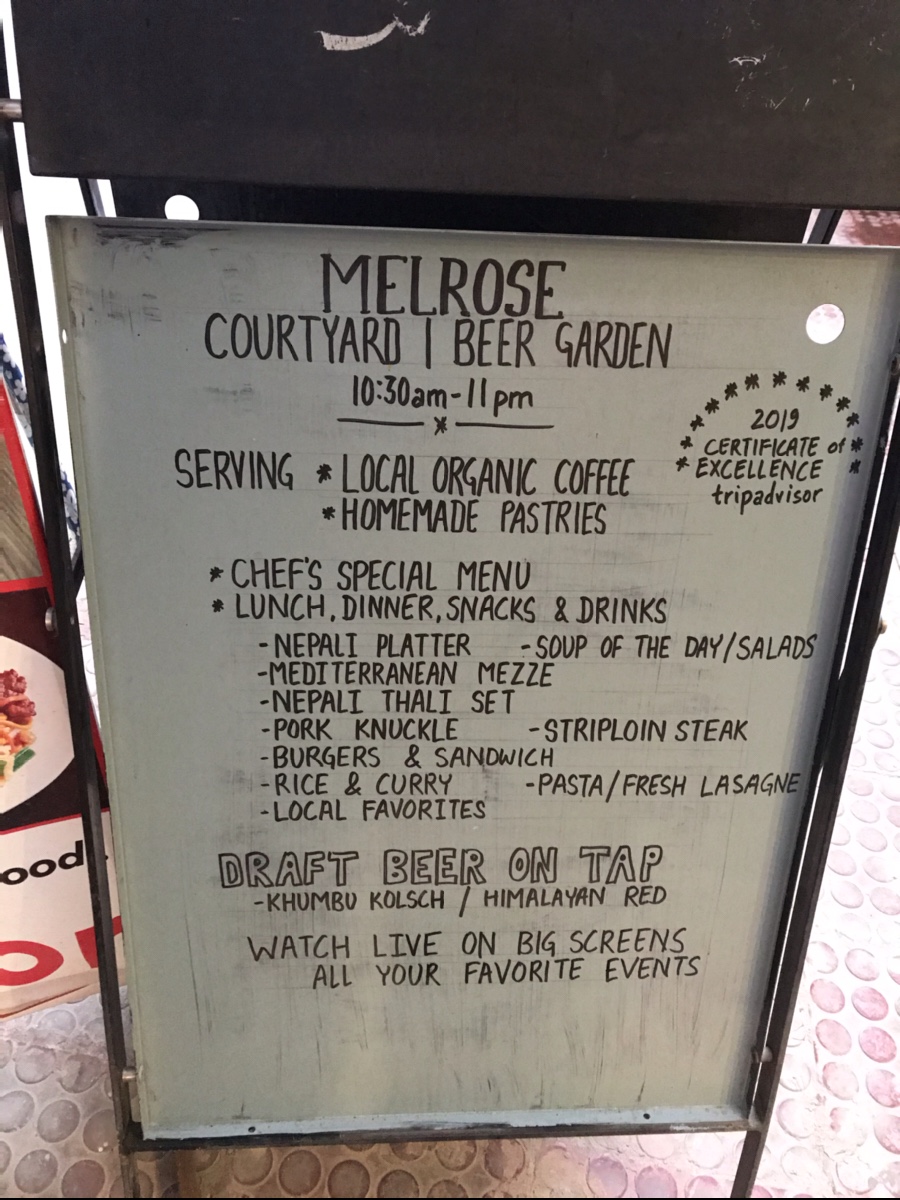 MELROSE
COURTYARD | BEER GARDEN
10:30am-11pm
2019
CERTIFICATE of
EXCELLENCE
tripadvisor
SERVING * LOCAL ORGANIC COFFEE
* HOMEMADE PASTRIES
* CHEF'S SPECIAL MENU
* LUNCH, DINNER, SNACKS & DRINKS
- NEPALI PLATTER - SOUP OF THE DAY/SALADS
- MEDITERRANEAN MEZZE
- NEPALI THALI SET
- PORK KNUCKLE - STRIPLOIN STEAK
- BURGERS & SANDWICH
- RICE & CURRY - PASTA/FRESH LASAGNE
- LOCAL FAVORITES
DRAFT BEER ON TAP
- KHUMBU KOLSCH / HIMALAYAN RED
WATCH LIVE ON BIG SCREENS
ALL YOUR FAVORITE EVENTS